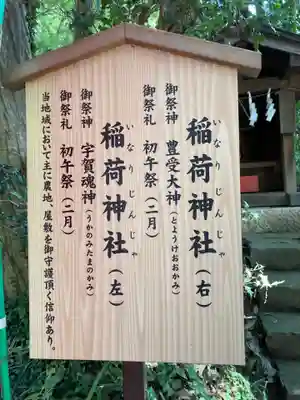 稲荷神社(右)
いなりじんじゃ
御祭神 豊受大神(とようけおおかみ)
御祭礼 初午祭(二月)
稲荷神社(左)
いなりじんじゃ
御祭神 宇賀魂神(うかのみたまのかみ)
御祭礼 初午祭(二月)
当地域において主に農地、屋敷を御守護頂く信仰あり。